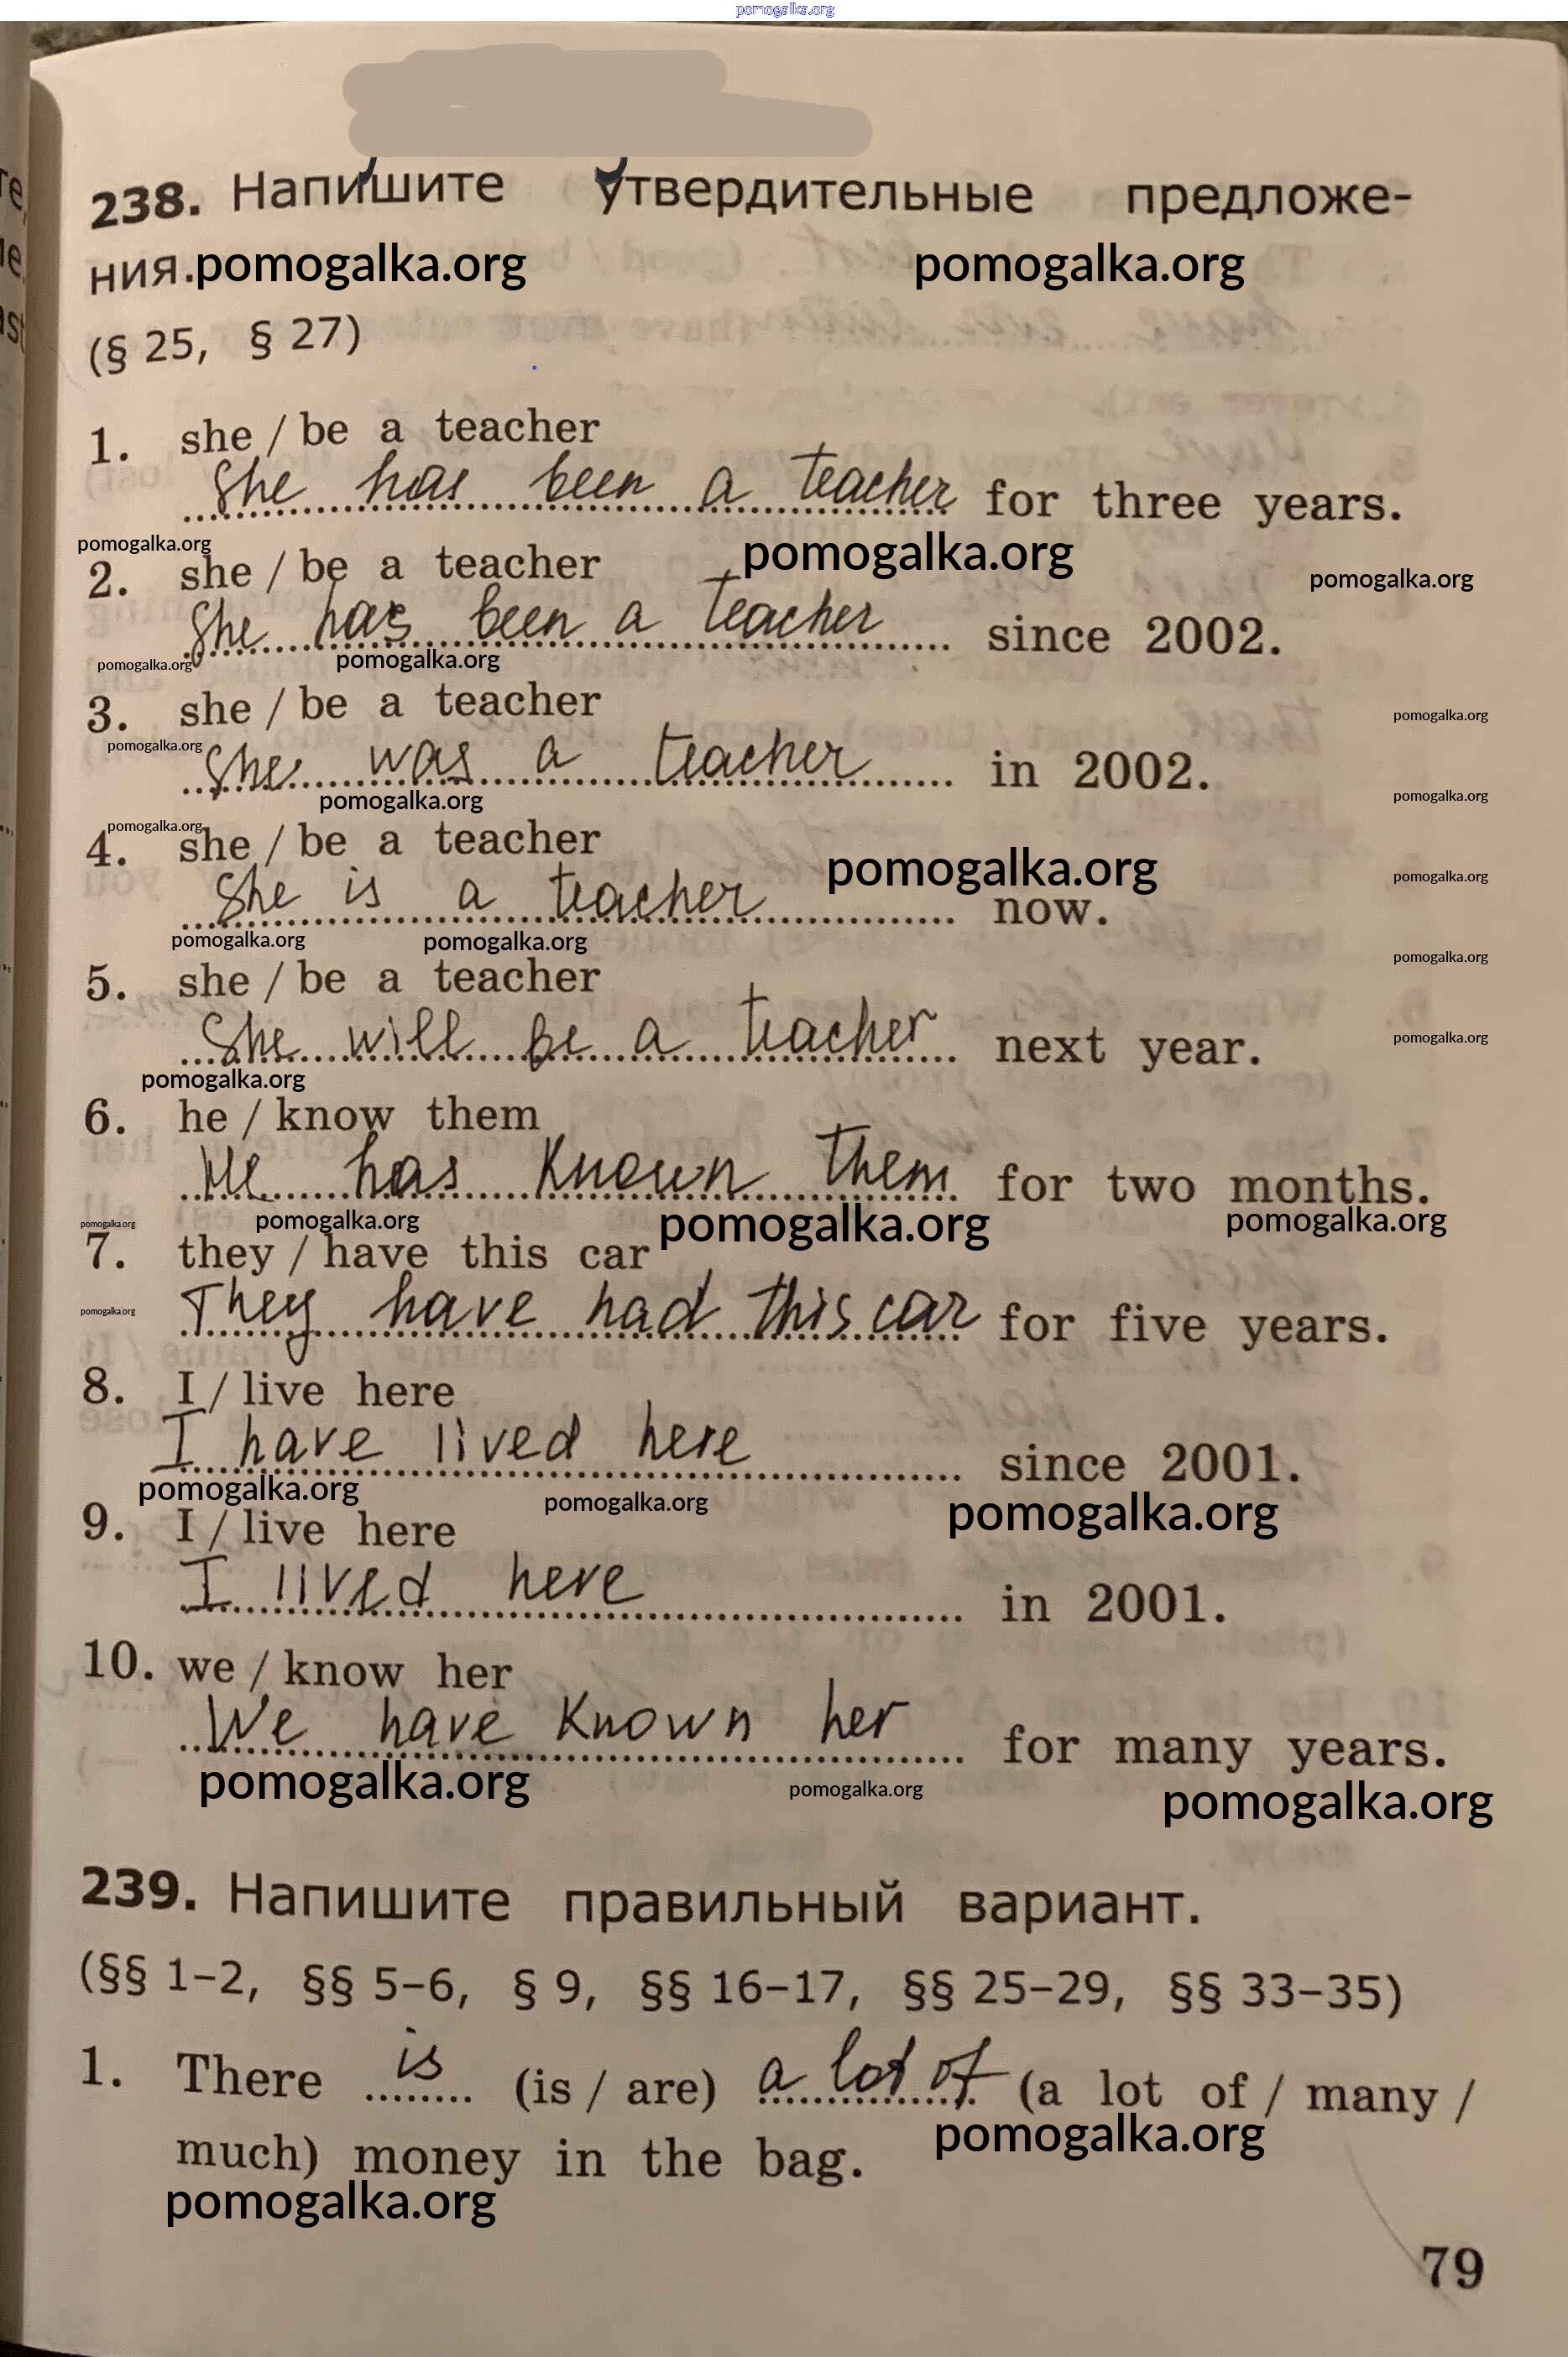 pomogalka.org
238. Напишите утвердительные предложе-
ния. pomogalka.org pomogalka.org
(§ 25, § 27)
1. she / be a teacher
She has been a teacher for three years.
pomogalka.org pomogalka.org pomogalka.org
2. she / be a teacher
She has been a teacher since 2002.
pomogalka.org pomogalka.org
3. she / be a teacher pomogalka.org
pomogalka.org She was a teacher in 2002.
pomogalka.org pomogalka.org
pomogalka.org
4. she / be a teacher
pomogalka.org pomogalka.org
She is a teacher now.
pomogalka.org pomogalka.org pomogalka.org
5. she / be a teacher
She will be a teacher next year. pomogalka.org
pomogalka.org
6. he / know them
He has known them for two months.
pomogalka.org pomogalka.org pomogalka.org pomogalka.org
7. they / have this car
pomogalka.org They have had this car for five years.
8. I / live here
I have lived here since 2001.
pomogalka.org pomogalka.org pomogalka.org
9. I / live here
I lived here in 2001.
10. we / know her
We have known her for many years.
pomogalka.org pomogalka.org pomogalka.org
239. Напишите правильный вариант.
(§§ 1–2, §§ 5–6, § 9, §§ 16–17, §§ 25–29, §§ 33–35)
1. There is (is / are) a lot of (a lot of / many /
much) money in the bag. pomogalka.org
pomogalka.org
79